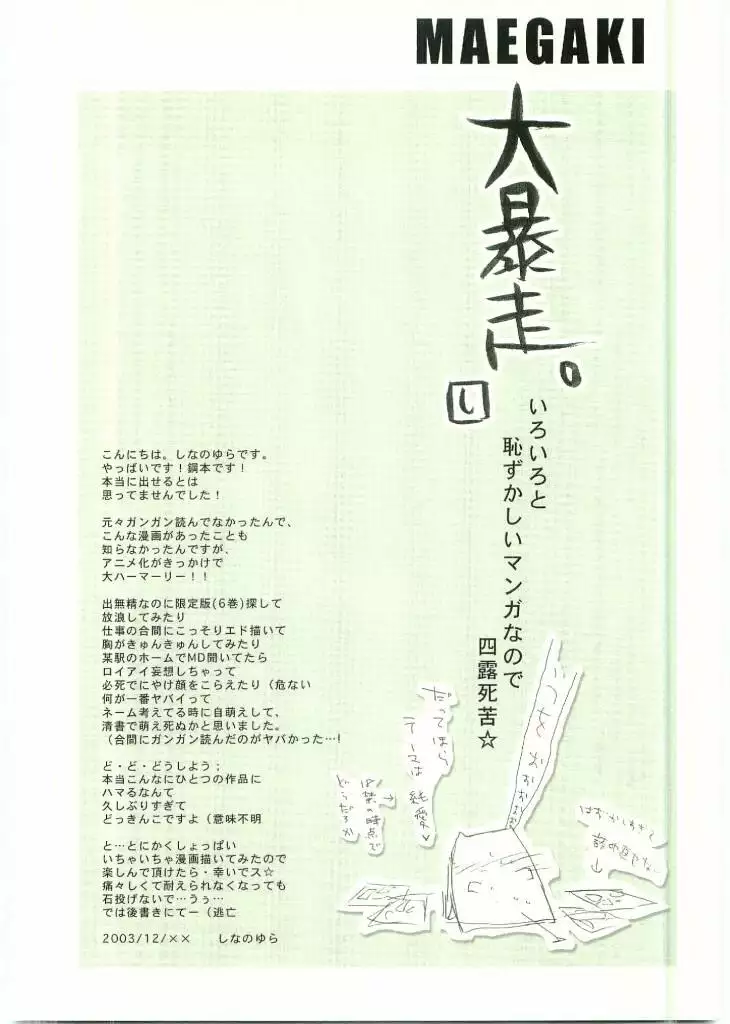 MAEGAKI
大暴走。
し
いろいろと
恥ずかしいマンガなので
四露死苦☆
こんにちは。しなのゆらです。
やっぱいです！鋼本です！
本当に出せるとは
思ってませんでした！
元々ガンガン読んでなかったんで、
こんな漫画があったことも
知らなかったんですが、
アニメ化がきっかけで
大ハーマーリー！！
出無精なのに限定版(6巻)探して
放浪してみたり
仕事の合間にこっそりエド描いて
胸がきゅんきゅんしてみたり
某駅のホームでMD聞いてたら
ロイアイ妄想しちゃって
必死でにやけ顔をこらえたり（危ない
何が一番ヤバイって
ネーム考えてる時に自萌えして、
清書で萌え死ぬかと思いました。
（合間にガンガン読んだのがヤバかった…!
ど・ど・どうしよう；
本当こんなにひとつの作品に
ハマるなんて
久しぶりすぎて
どっきんこですよ（意味不明
と…とにかくしょっぱい
いちゃいちゃ漫画描いてみたので
楽しんで頂けたら・幸いでス☆
痛々しくて耐えられなくなっても
石投げないで…うぅ…
では後書きにてー（逃亡
2003/12/××　しなのゆら
だってほら、
テーマは 純愛♥
→
18禁の時点で
どうだろか
はずかしすぎて
読み返せない
↓